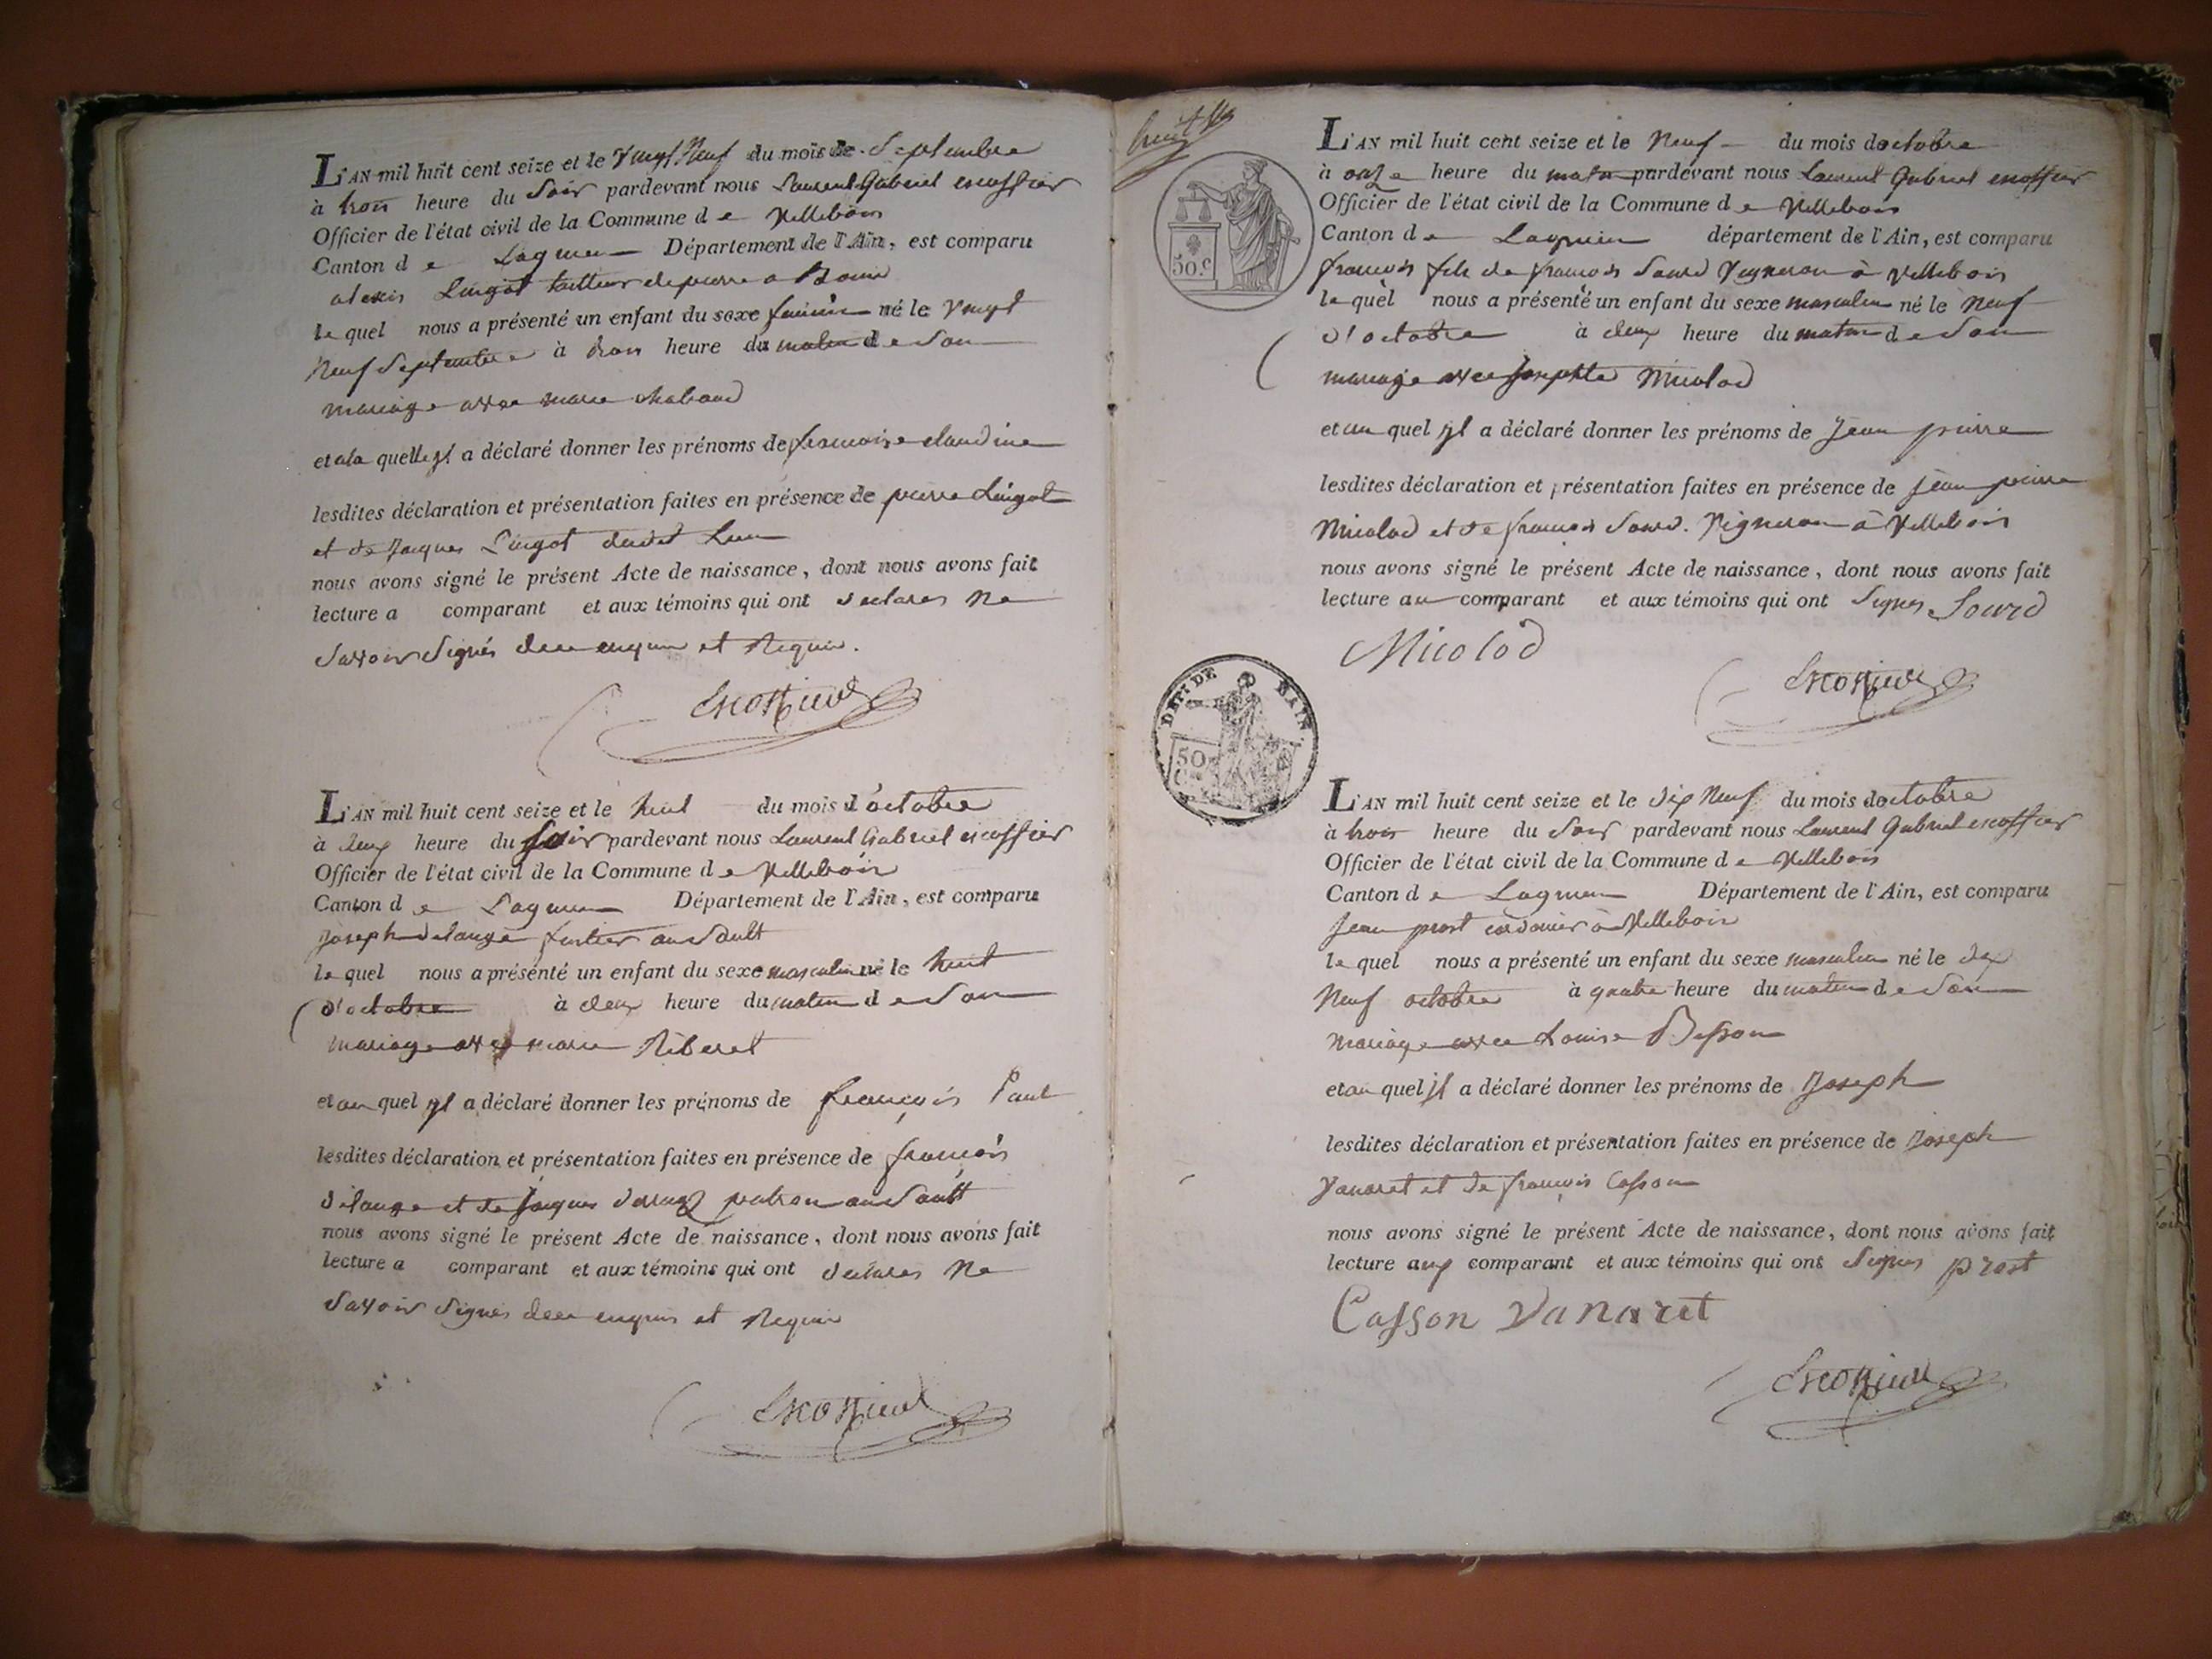 L'AN mil huit cent seize et le vingt Neuf du mois de Septembre
à trois heure du Soir pardevant nous Laurent Gabriel escoffier
Officier de l'état civil de la Commune de Villebois
Canton de Lagnieu Département de l'Ain, est comparu
alexis Lingot tailleur de pierre a
lequel nous a présenté un enfant du sexe feminin né le vingt
Neuf Septembre à trois heure du matin de Son
mariage avec marie chabaud
et a la quelle yl a déclaré donner les prénoms de francoise claudine
lesdites déclaration et présentation faites en présence de pierre Lingot
et de Jacques Lingot dudit Lieu
nous avons signé le présent Acte de naissance, dont nous avons fait
lecture a comparant et aux témoins qui ont declares Ne
Savoir Signés de ce enquis et Requis.
L'AN mil huit cent seize et le huit du mois d'octobre
à deux heure du Soir pardevant nous Laurent Gabriel escoffier
Officier de l'état civil de la Commune de Villebois
Canton de Lagnieu Département de l'Ain, est comparu
Joseph delange au Sault
lequel nous a présenté un enfant du sexe masculin né le huit
d'octobre à deux heure du matin de Son
mariage avec marie Riberet
et au quel yl a déclaré donner les prénoms de françois Paul
lesdites déclaration et présentation faites en présence de francois
delange et de Jacques patron au Sault
nous avons signé le présent Acte de naissance, dont nous avons fait
lecture a comparant et aux témoins qui ont declares Ne
Savoir Signés de ce enquis et Requis
huit
50.C
L'AN mil huit cent seize et le Neuf du mois doctobre
à onze heure du matin pardevant nous Laurent Gabriel escoffier
Officier de l'état civil de la Commune de Villebois
Canton de Lagnieu département de l'Ain, est comparu
francois fils de francois Sourd Vigneron à Villebois
lequel nous a présenté un enfant du sexe masculin né le Neuf
d'octobre à deux heure du matin de Son
mariage avec Josephte Micolod
et au quel yl a déclaré donner les prénoms de Jean pierre
lesdites déclaration et présentation faites en présence de Jean pierre
Micolod et de francois Sourd. Vigneron à Villebois
nous avons signé le présent Acte de naissance, dont nous avons fait
lecture au comparant et aux témoins qui ont Signes Sourd
Micolod
DEPT DE L'AIN
50
L'AN mil huit cent seize et le dix Neuf du mois doctobre
à trois heure du Soir pardevant nous Laurent Gabriel escoffier
Officier de l'état civil de la Commune de Villebois
Canton de Lagnieu Département de l'Ain, est comparu
Jean prost cordonier à Villebois
lequel nous a présenté un enfant du sexe masculin né le dix
Neuf octobre à quatre heure du matin de Son
mariage avec Louise Besson
et au quel yl a déclaré donner les prénoms de Joseph
lesdites déclaration et présentation faites en présence de Joseph
Vanaret et de françois Casson
nous avons signé le présent Acte de naissance, dont nous avons fait
lecture aux comparant et aux témoins qui ont Signes prost
Casson Vanaret